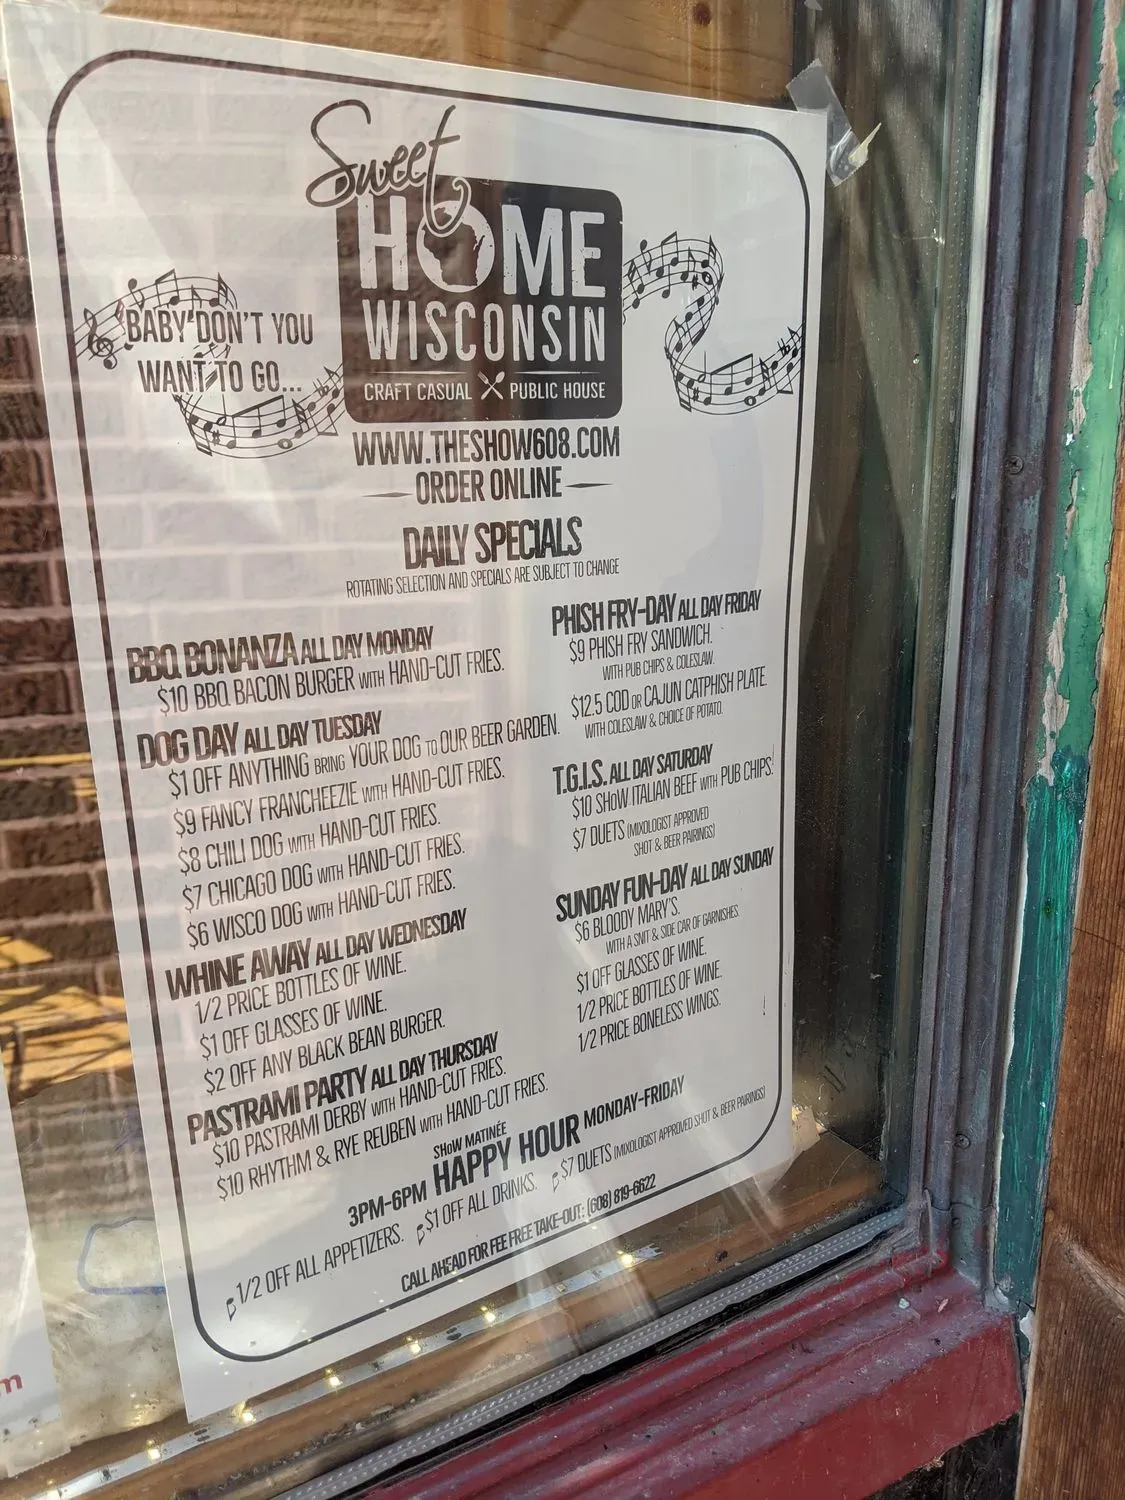 Sweet
HOME
WISCONSIN
CRAFT CASUAL PUBLIC HOUSE
BABY DON'T YOU
WANT TO GO...
WWW.THESHOW608.COM
ORDER ONLINE
DAILY SPECIALS
ROTATING SELECTION AND SPECIALS ARE SUBJECT TO CHANGE
BBQ BONANZA ALL DAY MONDAY
$10 BBQ BACON BURGER WITH HAND-CUT FRIES.
DOG DAY ALL DAY TUESDAY
$1 OFF ANYTHING BRING YOUR DOG TO OUR BEER GARDEN.
$9 FANCY FRANCHEEZIE WITH HAND-CUT FRIES.
$8 CHILI DOG WITH HAND-CUT FRIES.
$7 CHICAGO DOG WITH HAND-CUT FRIES.
$6 WISCO DOG WITH HAND-CUT FRIES.
WHINE AWAY ALL DAY WEDNESDAY
1/2 PRICE BOTTLES OF WINE.
$1 OFF GLASSES OF WINE.
$2 OFF ANY BLACK BEAN BURGER.
PASTRAMI PARTY ALL DAY THURSDAY
$10 PASTRAMI DERBY WITH HAND-CUT FRIES.
$10 RHYTHM & RYE REUBEN WITH HAND-CUT FRIES.
PHISH FRY-DAY ALL DAY FRIDAY
$9 PHISH FRY SANDWICH.
WITH PUB CHIPS & COLESLAW.
$12.5 COD OR CAJUN CATPHISH PLATE.
WITH COLESLAW & CHOICE OF POTATO.
T.G.I.S. ALL DAY SATURDAY
$10 SHOW ITALIAN BEEF WITH PUB CHIPS.
$7 DUETS (MIXOLOGIST APPROVED
SHOT & BEER PAIRINGS)
SUNDAY FUN-DAY ALL DAY SUNDAY
$6 BLOODY MARY'S.
WITH A SNIT & SIDE CAR OF GARNISHES.
$1 OFF GLASSES OF WINE.
1/2 PRICE BOTTLES OF WINE.
1/2 PRICE BONELESS WINGS.
SHOW MATINÉE
3PM-6PM HAPPY HOUR MONDAY-FRIDAY
1/2 OFF ALL APPETIZERS. $1 OFF ALL DRINKS. $7 DUETS (MIXOLOGIST APPROVED SHOT & BEER PAIRINGS)
CALL AHEAD FOR FEE FREE TAKE-OUT: (608) 819-6622
m